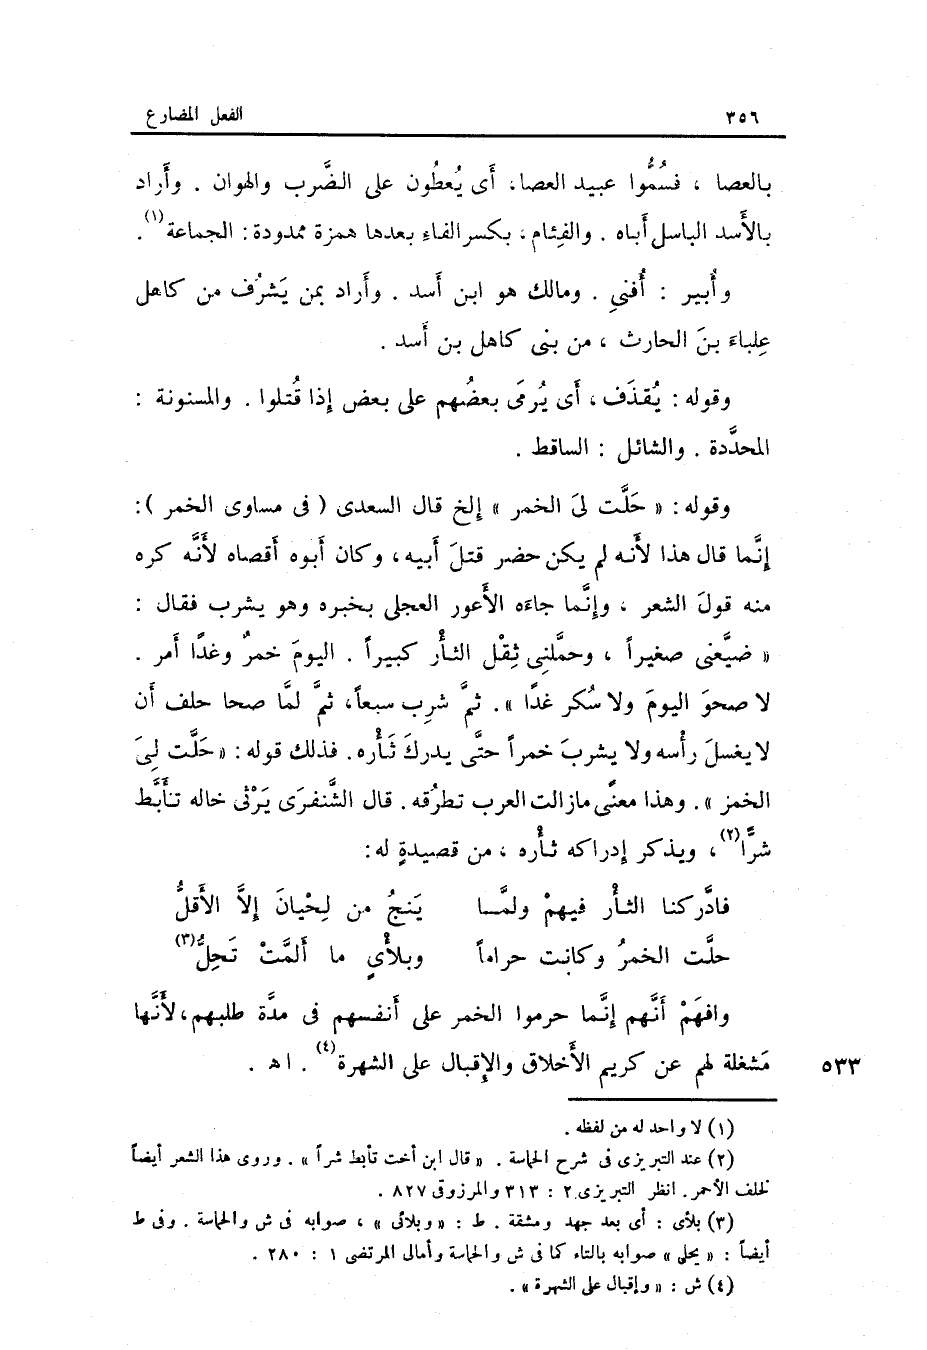 ٣٥٦ الفعل المضارع
بالعصا ، فسُمُّوا عبيد العصا، أَى يُعطُون على الضَّرب والهوان . وأَراد
بالأَسد الباسل أَباه . والفِئام، بكسر الفاء بعدها همزة ممدودة : الجماعة(١).
وأُبير : أُفنى . ومالك هو ابن أَسد . وأَراد بمن يَشرُف من كاهل
عِلباءَ بنَ الحارث ، من بنى كاهل بن أَسد .
وقوله : يُقذَف ، أَى يُرمَى بعضُهم على بعض إِذا قُتلوا . والمسنونة :
المحدَّدة . والشائل : الساقط .
وقوله : « حَلَّت لىَ الخمر » إِلخ قال السعدى ( فى مساوى الخمر ) :
إِنَّما قال هذا لأَنه لم يكن حضر قتلَ أَبيه ، وكان أَبوه أَقصاه لأَنَّه كره
منه قولَ الشعر ، وإِنَّما جاءَه الأَعور العجلى بخبره وهو يشرب فقال :
« ضيَّعنى صغيراً ، وحمَّلنِى ثِقْل الثأْر كبيراً . اليومَ خمرٌ وغدًا أَمر .
لا صحوَ اليومَ ولا سُكر غدًا » . ثمَّ شرِب سبعاً، ثمَّ لمَّا صحا حلف أَن
لا يغسلَ رأْسه ولا يشربَ خمراً حتَّى يدركَ ثَأْره . فذلك قوله : « حَلَّت لِىَ
الخمر » . وهذا معنًى مازالت العرب تطرُقه . قال الشَّنفرَى يَرْثى خاله تأَبَّط
شرًّا(٢) ، ويذكر إِدراكه ثأْره ، من قصيدةٍ له :
فادَّركنا الثأْر فيهمْ ولمَّـا يَنجُ من لِحْيانَ إِلاَّ الأَقلُّ
حلَّت الخمرُ وكانت حراماً وبلأْىٍ ما أَلمَّتْ تَحِلُّ(٣)
وافهَمْ أَنَّهم إِنَّما حرموا الخمر على أَنفسهم فى مدَّة طلبهم ، لأَنَّها
مَشغلة لهم عن كريم الأَخلاق والإِقبال على الشهرة(٤) . اهـ . ٥٣٣
(١) لا واحد له من لفظه .
(٢) عند التبريزى فى شرح الحماسة . « قال ابن أخت تأبط شراً » . وروى هذا الشعر أيضاً
لخلف الأحمر . انظر التبريزى ٢ : ٣١٣ والمرزوقى ٨٢٧ .
(٣) بلأى : أى بعد جهد ومشقة . ط : « وبلائى » ، صوابه فى ش والحماسة . وفى ط
أيضاً : « يحلى » صوابه بالتاء كما فى ش والحماسة وأمالى المرتضى ١ : ٢٨٠ .
(٤) ش : « وإقبال على الشهرة » .